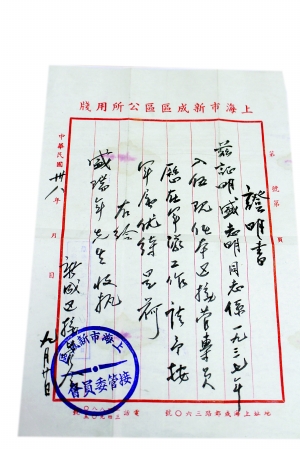 上海市新成區區公所用牋
第 號第 頁
證明書
茲證明盛志明同志係一九三七年
入伍現任本区接管專員
在軍隊工作請予按
軍属優待是荷
右給
盛瑞年先生收執
新成区接
九月廿日
中華民國卅八年 月 日
上海市新成區
接管委員會
地址上海成都路三六〇號
電話